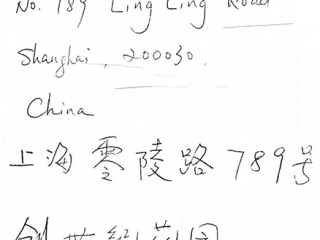 No. 789 Ling Ling Road
Shanghai, 200030,
China
上海零陵路789号
创世纪花园